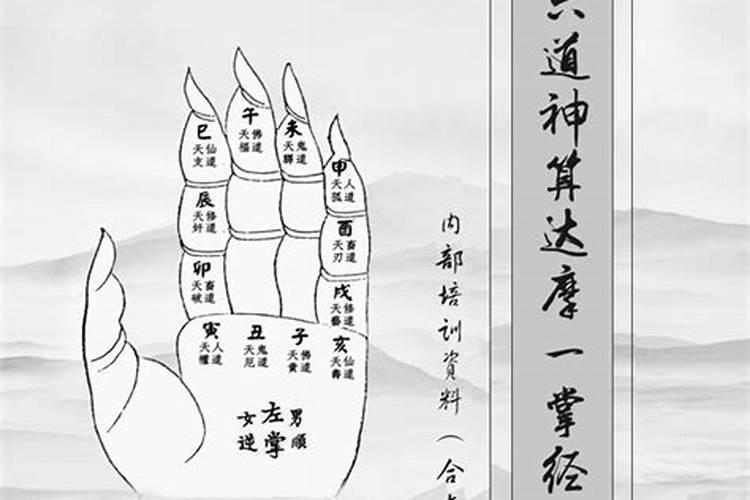 六道神算达摩一掌经
内部培训資料（合
巳
天支
仙道
午
天福
佛道
未
天驛
鬼道
申
天孤
人道
辰
天奸
修道
酉
天刃
畜道
卯
天破
畜道
戌
天藝
修道
寅
天權
人道
丑
天厄
鬼道
子
天貴
佛道
亥
天壽
仙道
男順
左掌
女逆